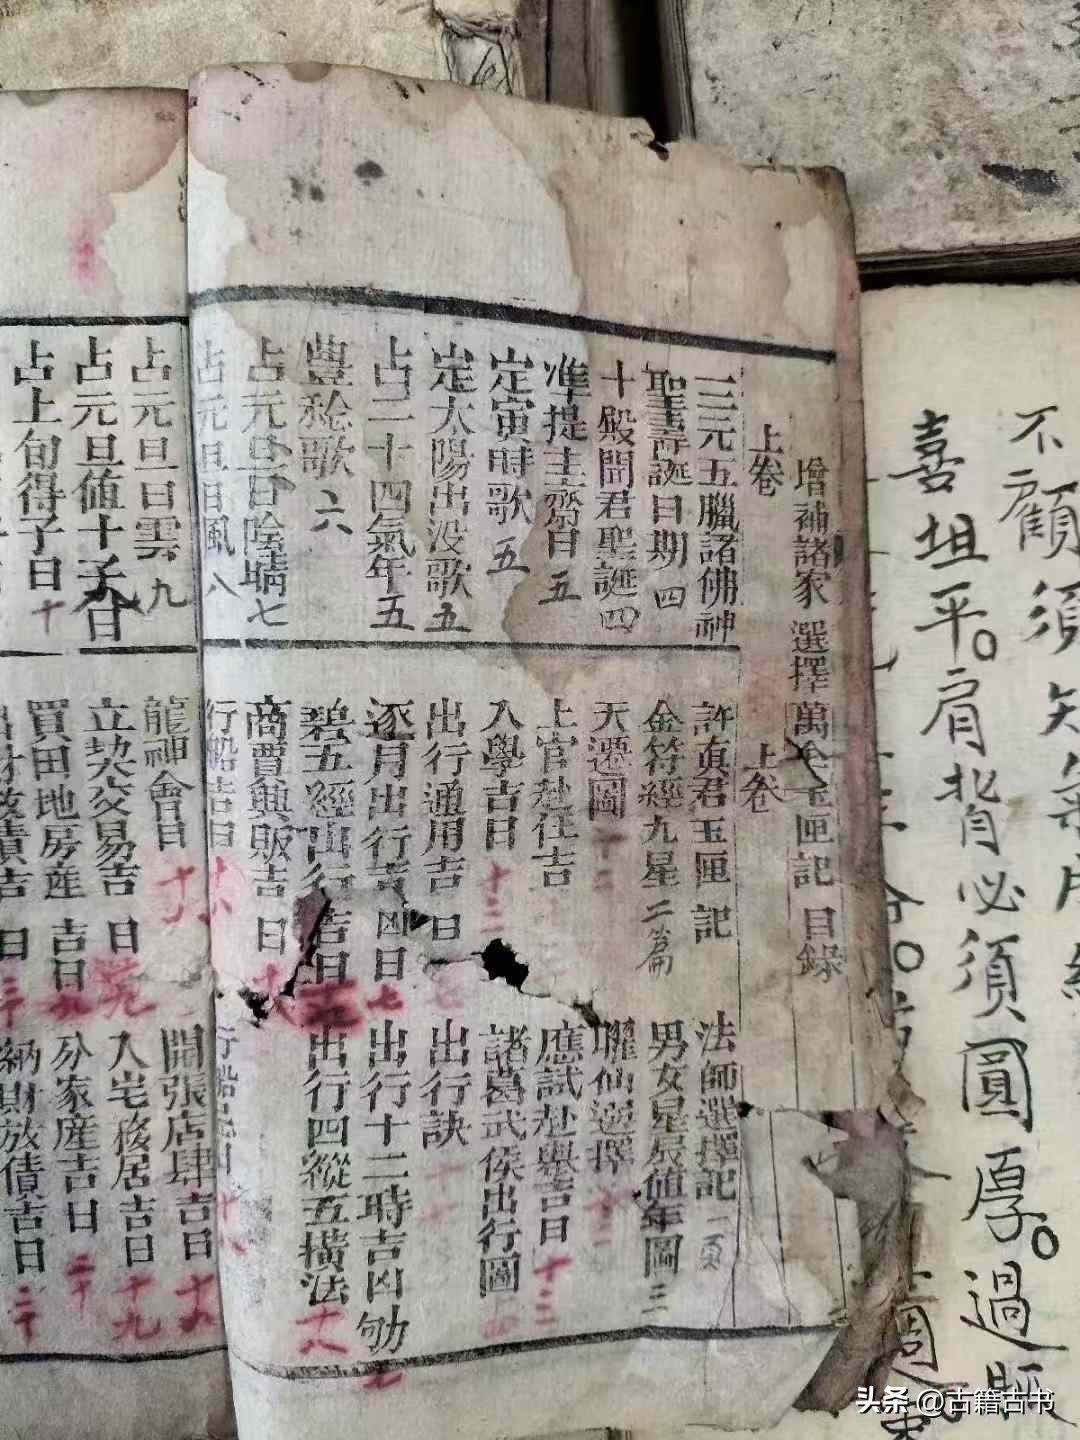 增補諸家選擇萬全玉匣記目錄
上卷
上卷
三元五臘諸佛神
聖壽誕日期 四
十殿閻君聖誕 四
準提主齋日 五
定寅時歌 五
定太陽出没歌 五
占二十四氣年 五
豊稔歌 六
占元旦日陰晴 七
占元旦日風 八
占元旦日雲 九
占元旦值十子日
占上旬得子日 十
許真君玉匣記
金符經九星 二篇
天遷圖
上官赴任吉
入學吉日 十二
出行通用吉日
逐月出行吉凶日 七
碧五經出行吉日
商賈興販吉日
行船吉日
龍神會日
立契交易吉日 十九
買田地房産吉日
出財放債吉日
法師選擇記 一頁
男女星辰值年圖 三
應試赴舉吉日 十三
諸葛武侯出行圖
出行訣
出行十二時吉凶㓜 七
出行四縱五横法 十八
開張店肆吉日 十九
入宅移居吉日 十九
分家産吉日 二十
納財放債吉日 二十
不顧須
喜坦平。肩背必須圓厚。過
头条 @古籍古书